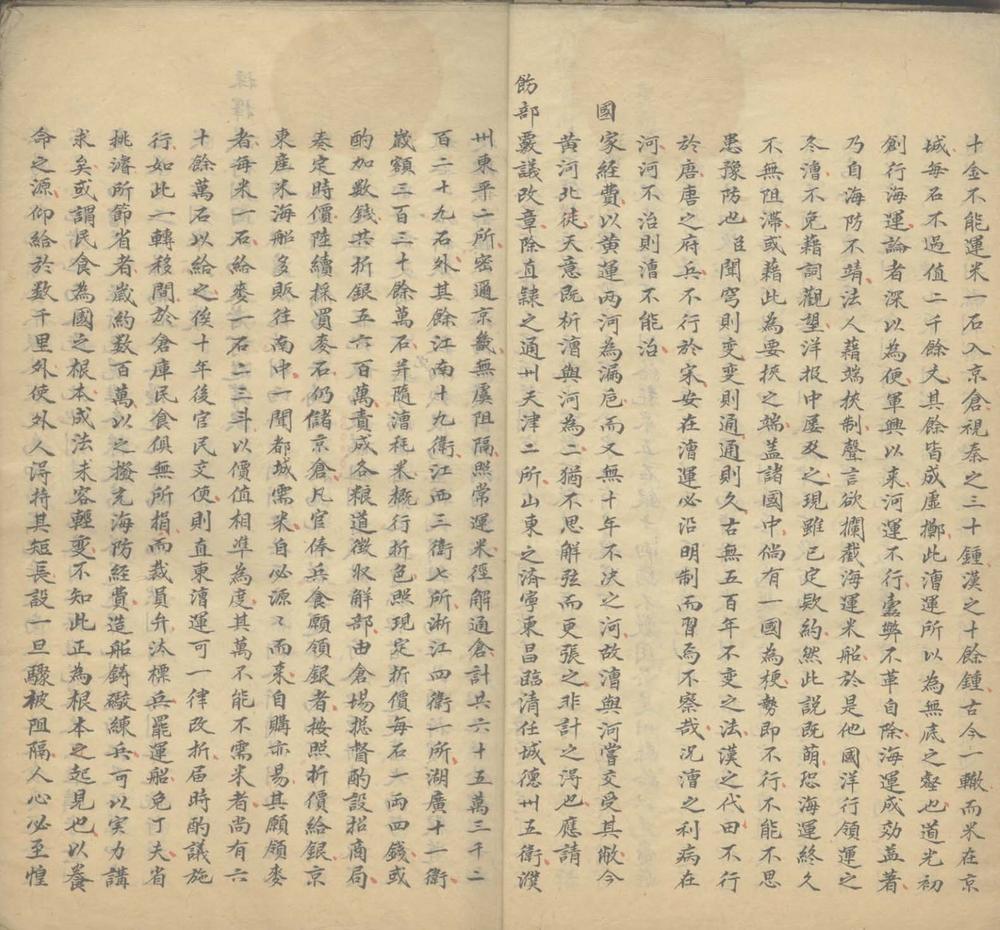 十金不能運米一石入京倉視秦之三十鍾漢之十餘鍾古今一轍而米在京
城每石不過值二千餘文其餘皆成虛擲此漕運所以為無底之壑也道光初
創行海運論者深以為便軍興以來河運不行蠹弊不革自除海運成効益著
乃自海防不靖法人藉端挾制聲言欲攔截海運米船於是他國洋行領運之
冬漕不免藉詞觀望洋报中屡及之現雖已定欵約然此説既萌恐海運終久
不無阻滞或藉此為要挾之端盖諸國中倘有一國為梗勢即不行不能不思
患豫防也臣聞窮則变变則通通則久古無五百年不变之法漢之代田不行
於唐唐之府兵不行於宋安在漕運必沿明制而習焉不察哉况漕之利病在
河河不治則漕不能治
國家經費以黄運两河為漏卮而又無十年不决之河故漕與河嘗交受其敝今
黄河北徒天意既析漕與河為二猶不思解弦而更張之非計之淂也應請
飭部覈議改章除直隸之通州天津二所山東之濟寧東昌臨清任城德州五衛濮
州東平二所密通京畿無虞阻隔照常運米徑解通倉計共六十五萬三千二
百二十九石外其餘江南十九衛江西三衛七所浙江四衛一所湖廣十一衛
歲額三百三十餘萬石并隨漕耗米概行折色照現定折價每石一兩四錢或
酌加数錢共折銀五六百萬責成各粮道徴收解部由倉塲揔督酌設招商局
奏定時價陸續採買麥石仍儲京倉凡官俸兵食願領銀者按照折價給銀京
東產米海船多販往南中一聞都城需米自必源々而来自購亦易其願領麥
者每米一石給麥一石二三斗以價值相準為度其萬不能不需米者尚有六
十餘萬石以給之俟十年後官民交便則直東漕運可一律改折届時酌議施
行如此一轉移間於倉庫民食俱無所損而裁員弁汰標兵罷運船免丁夫省
挑濬所節省者歲約数百萬以之撥充海防經費造船鋳礮練兵可以実力講
求矣或謂民食為國之根本成法未容輕变不知此正為根本之起見也以養
命之源仰給於数千里外使外人淂持其短長設一旦驟被阻隔人心必至惶